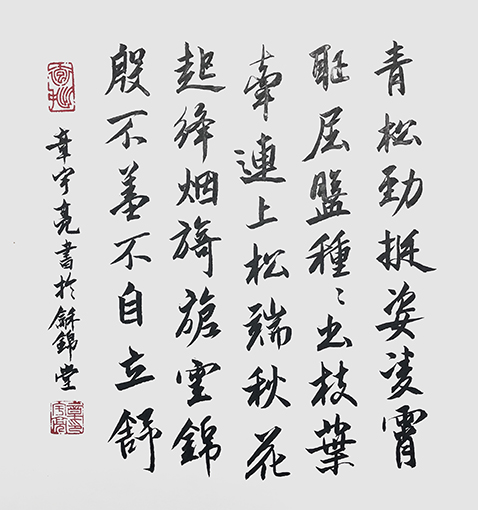 青松勁挺姿凌霄
耻屈盤種〻出枝葉
牽連上松端秋花
起絳烟旖旎雲錦
殷不羞不自立舒
章宇亮書於錦堂